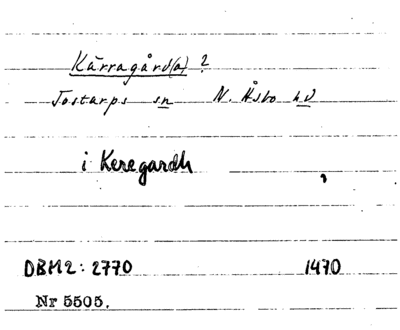 Kärragård(a) ?
Tostarps sn N. Åsbo hd
i Keregardh
DBM2: 2770 1470
Nr 5505.